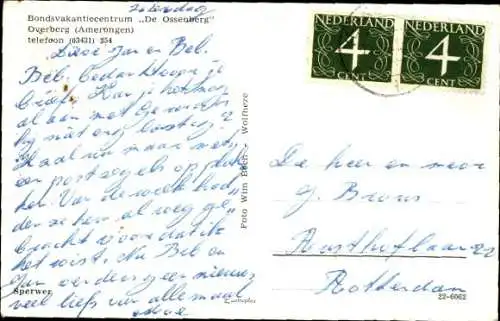 Zaterdag
Bondsvakantiecentrum „De Ossenberg"
Overberg (Amerongen)
telefoon (03431) 254
Lieve Jan en Bel.
Bel bedankt voor je
brief. Kan je het nog
al aan met
hij niet erg lastig?
Ik zal nu maar
een postzegels op plak
ken. Van de week had
den ze hem al weg ge
bracht voor dat ik
het wist. Nu Bel en
Jan verder geen nieuws
veel liefs van allemaal
Sperwer
Foto Wim Esch - Wolfheze
NEDERLAND
4
CENT
NEDERLAND
4
CENT
De heer en mevr
J. Brons
Rotterdam
22-6062